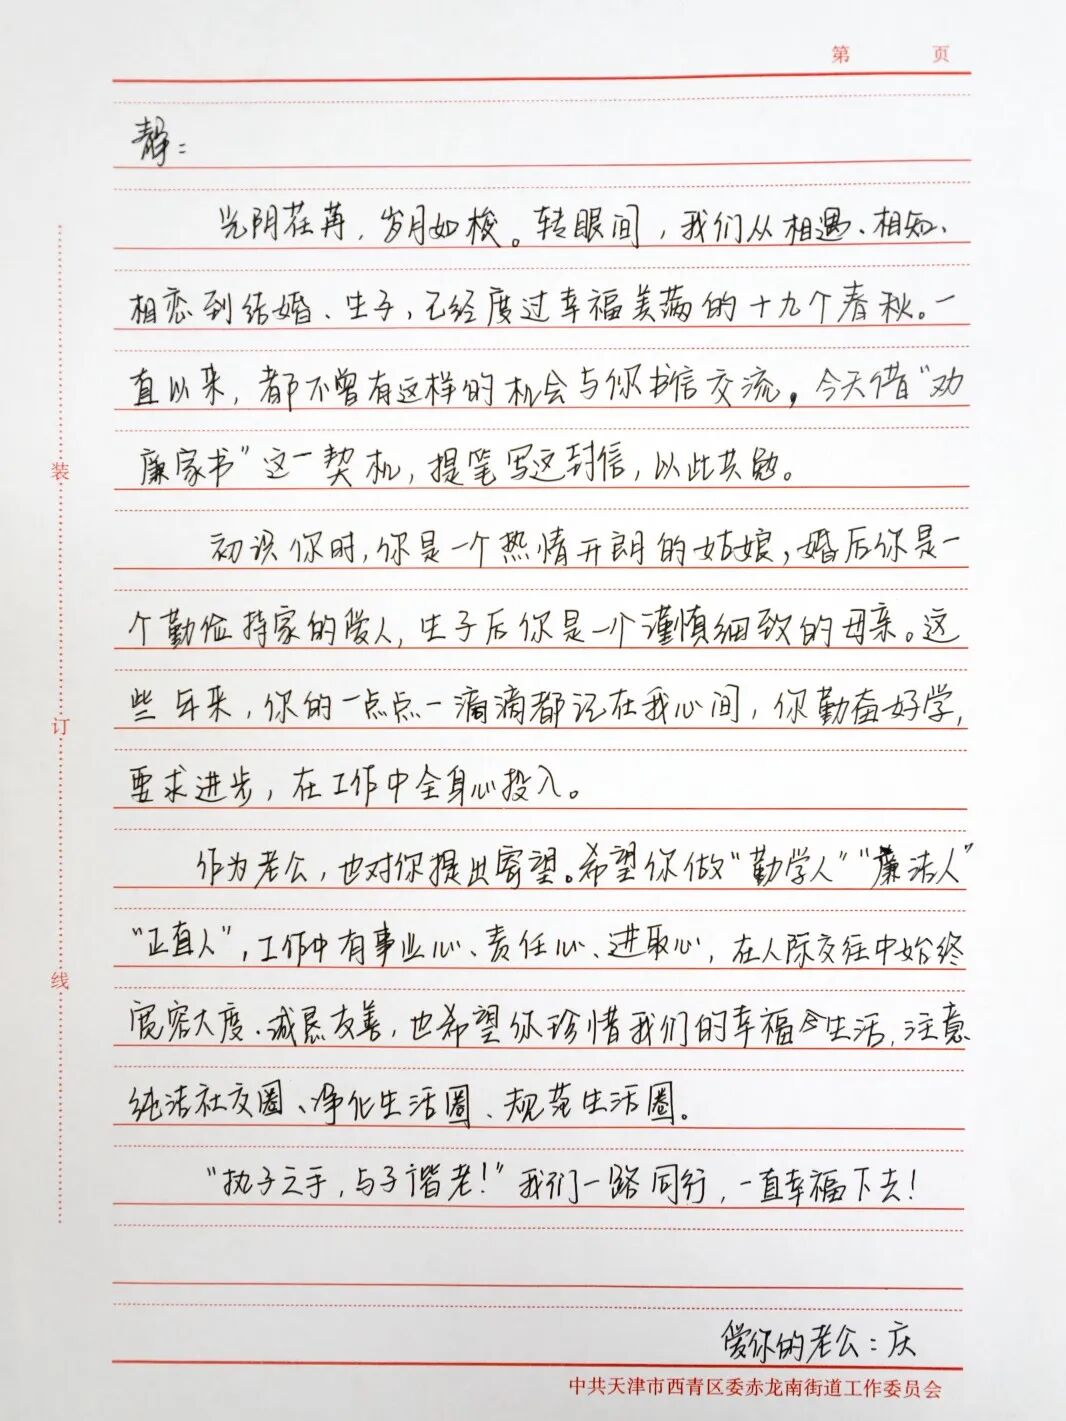 第 页
静：
光阴荏苒，岁月如梭。转眼间，我们从相遇、相知、
相恋到结婚、生子，已经度过幸福美满的十九个春秋。一
直以来，都不曾有这样的机会与你书信交流，今天借“劝
廉家书”这一契机，提笔写这封信，以此共勉。
初识你时，你是一个热情开朗的姑娘，婚后你是一
个勤俭持家的爱人，生子后你是一个谨慎细致的母亲。这
些年来，你的一点点一滴滴都记在我心间，你勤奋好学，
要求进步，在工作中全身心投入。
作为老公，也对你提出寄望。希望你做“勤学人”“廉洁人”
“正直人”，工作中有事业心、责任心、进取心，在人际交往中始终
宽容大度、诚恳友善，也希望你珍惜我们的幸福生活，注意
纯洁社交圈、净化生活圈、规范生活圈。
“执子之手，与子谐老！”我们一路同行，一直幸福下去！
爱你的老公：庆
装
订
线
中共天津市西青区委赤龙南街道工作委员会